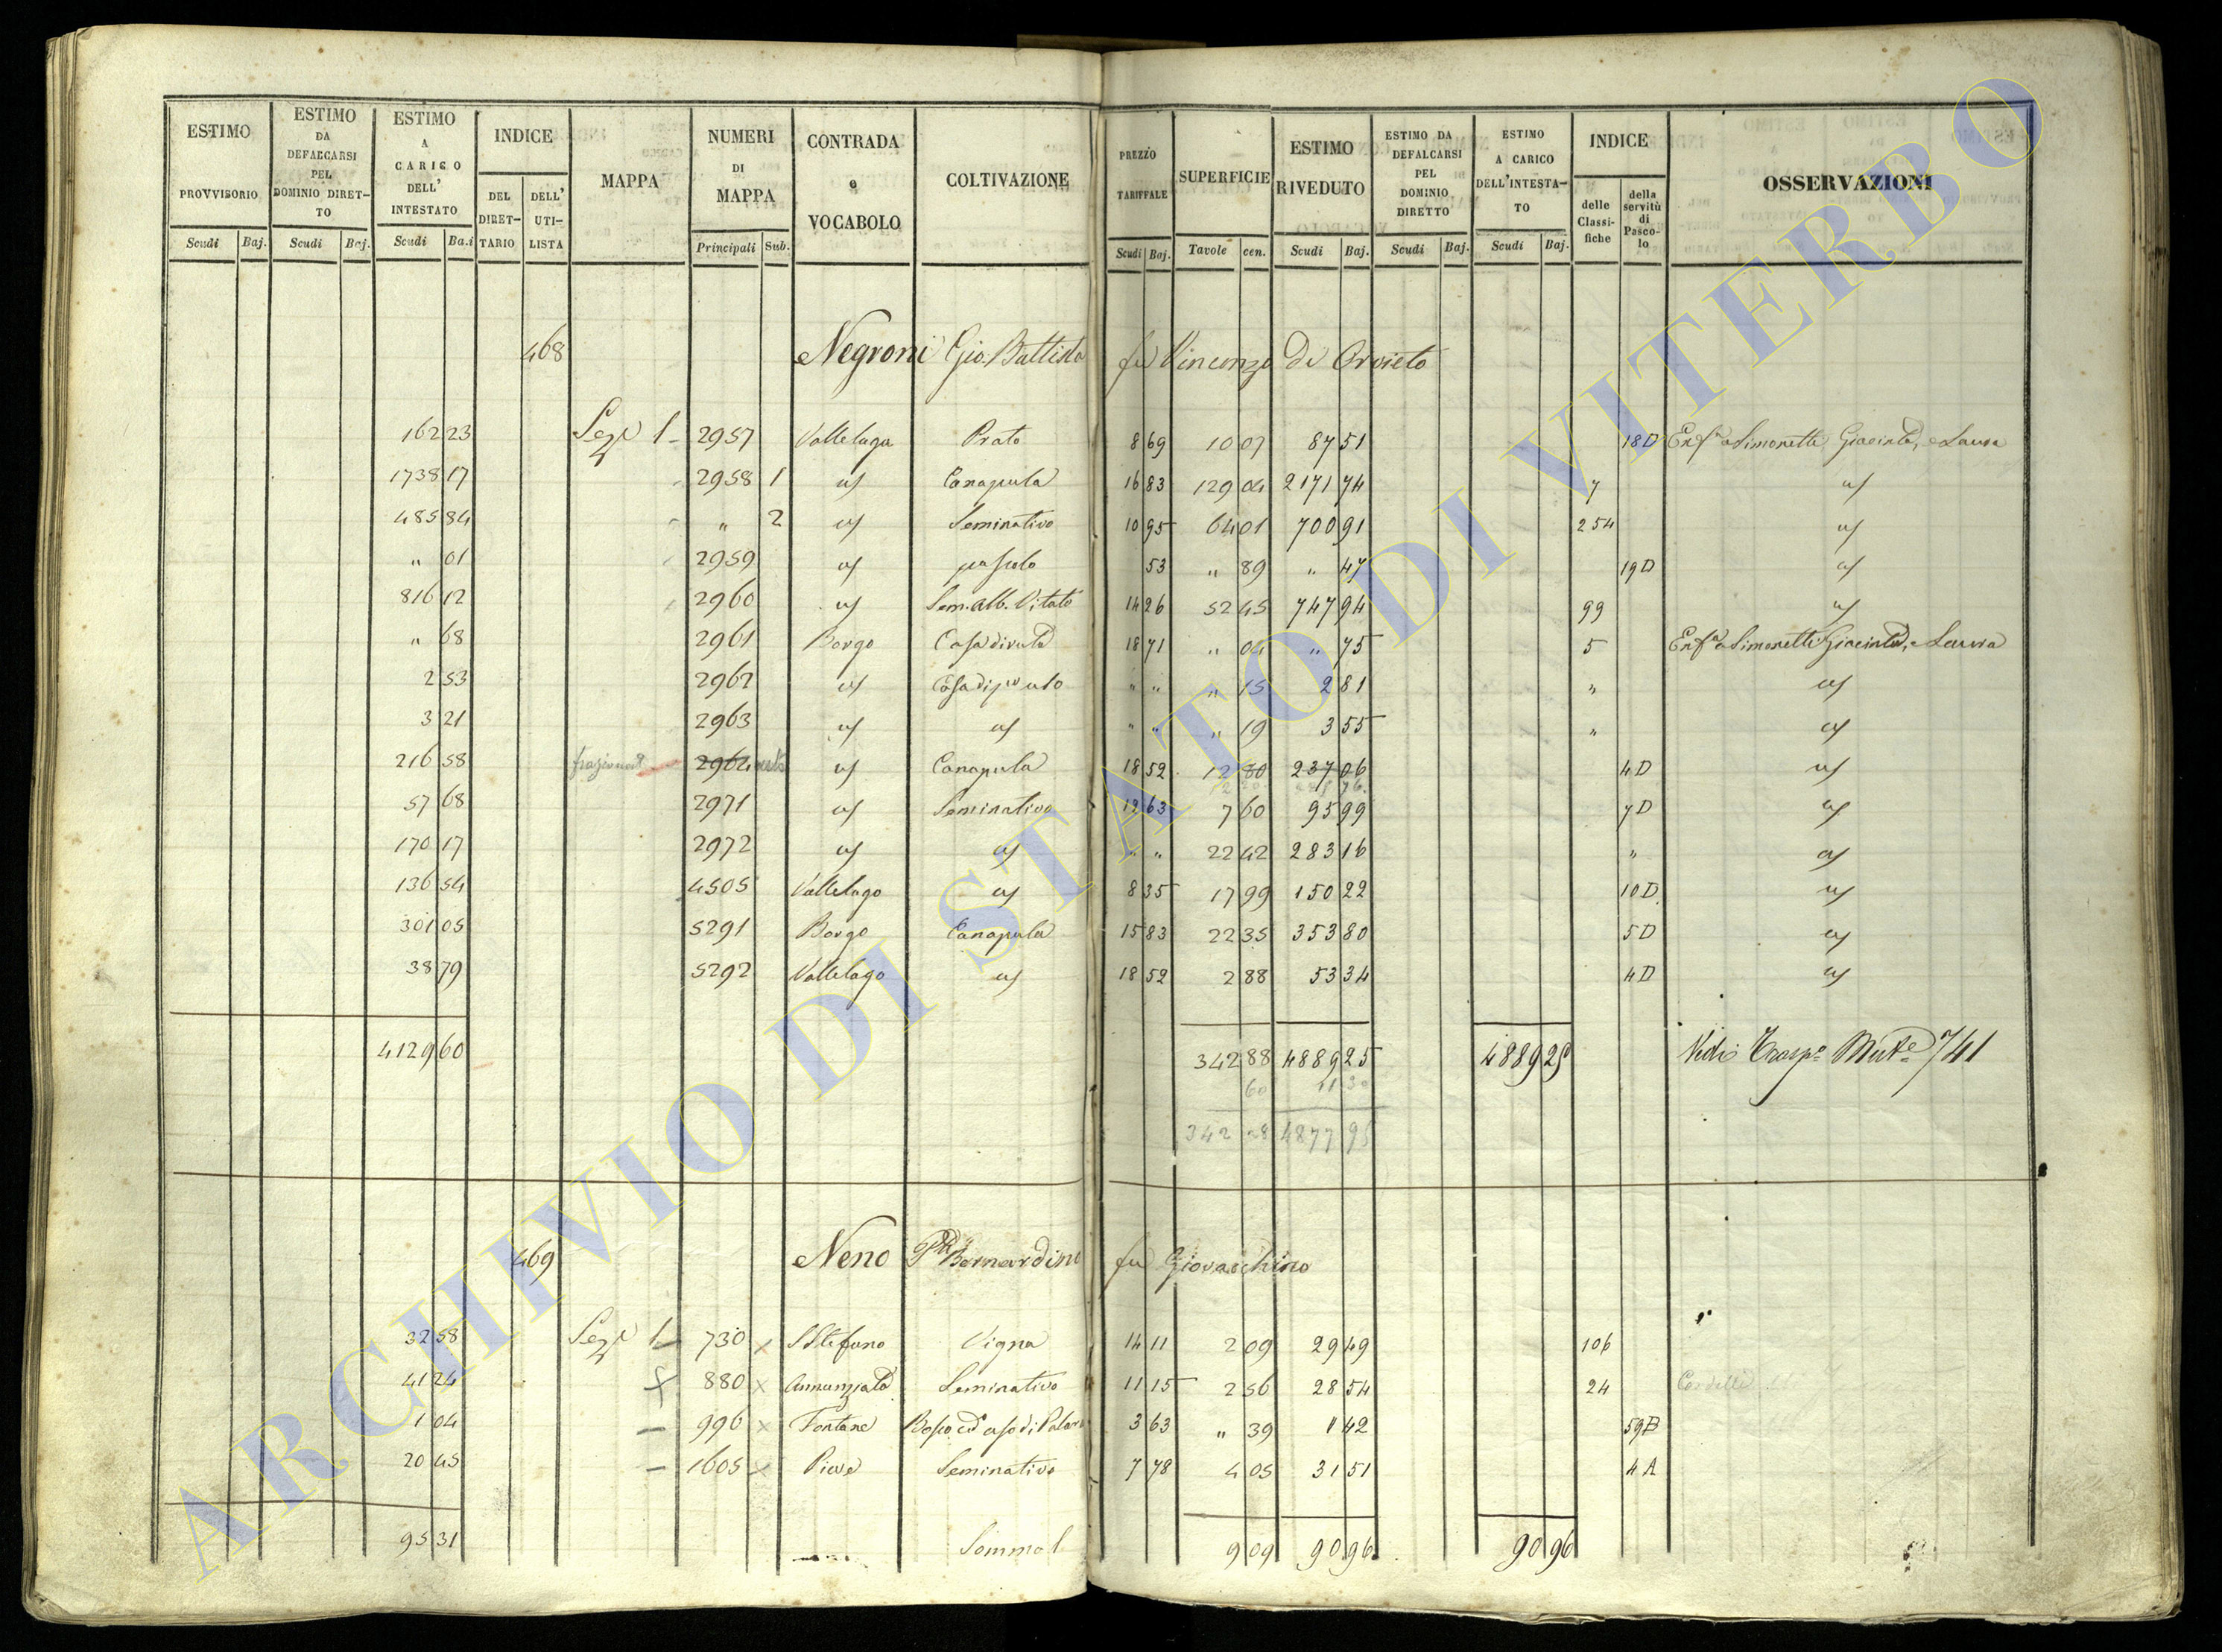 ESTIMO PROVVISORIO Scudi Baj.
ESTIMO DA DEFALCARSI PEL DOMINIO DIRETTO Scudi Baj.
ESTIMO A CARICO DELL' INTESTATO Scudi Ba.i
INDICE DEL DIRETTARIO DELL' UTILISTA
MAPPA
NUMERI DI MAPPA Principali Sub.
CONTRADA o VOCABOLO
COLTIVAZIONE
PREZZO TARIFFALE Scudi Baj.
SUPERFICIE Tavole cen.
ESTIMO RIVEDUTO Scudi Baj.
ESTIMO DA DEFALCARSI PEL DOMINIO DIRETTO Scudi Baj.
ESTIMO A CARICO DELL'INTESTATO Scudi Baj.
INDICE delle Classifiche della servitù di Pascolo
OSSERVAZIONI
468 Negroni Gio. Battista fu Vincenzo di Orvieto
162 23 Sezе 1 2957 Vallelaga Prato 8 69 10 07 87 51 18D Enfa a Simonetti Giacinto, e Laura
1738 17 2958 1 Canapula 16 83 129 04 2171 74 7
485 84 " 2 Seminativo 10 95 64 01 700 91 254
" 01 2959 pascolo 53 " 89 " 47 19D
816 12 2960 Sem. Alb. Vitato 14 26 52 45 747 94 99
" 68 2961 Borgo Casa diruta 18 71 " 04 " 75 5 Enfa a Simonetti Giacinto, e Laura
2 53 2962 " " " 15 2 81 "
3 21 2963 " " " 19 3 55 "
216 58 2964 Canapula 18 52 12 80 237 06 4D
57 68 2971 Seminativo 12 63 7 60 95 99 7D
170 17 2972 " " 22 42 283 16 "
136 54 4505 Vallelago 8 35 17 99 150 22 10D
301 05 5291 Borgo Canapula 15 83 22 35 353 80 5D
38 79 5292 Vallelago 18 52 2 88 53 34 4D
4129 60 342 88 4889 25 4889 25 Vedi Trasp. Mut. 741
60 11 30
342 28 4877 95
469 Neno Bernardino fu Giovacchino
32 58 730 S Stefano Vigna 14 11 2 09 29 49 106
41 24 880 Annunziata Seminativo 11 15 2 56 28 54 24
1 04 996 Fontane 3 63 " 39 1 42 59B
20 45 1605 Pieve Seminativo 7 78 4 05 31 51 4A
95 31 9 09 90 96 90 96
ARCHIVIO DI STATO DI VITERBO